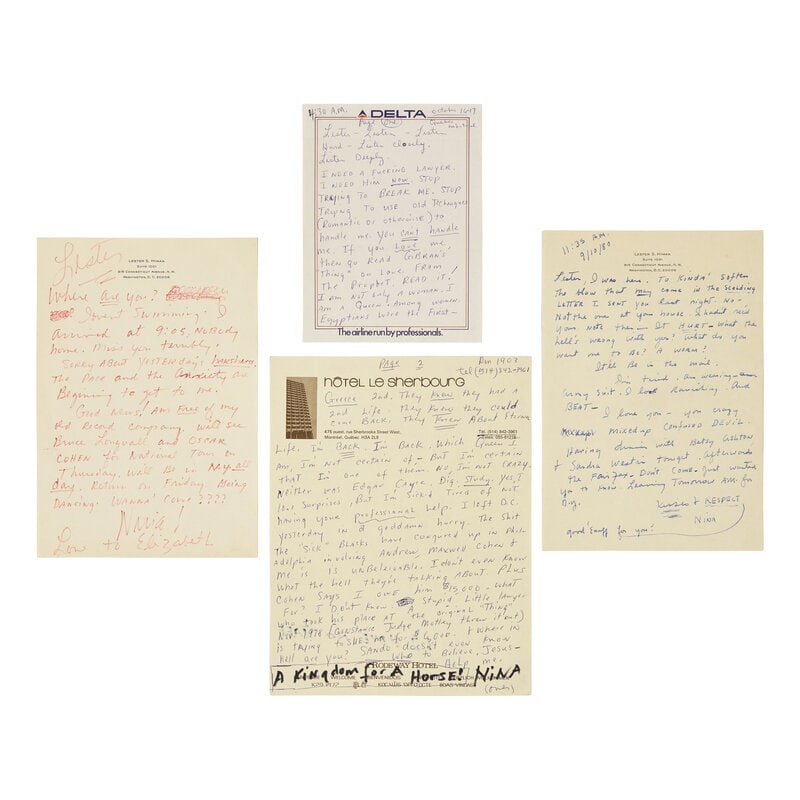 Lester
LESTER S. HYMAN
SUITE 1021
815 CONNECTICUT AVENUE, N.W.
WASHINGTON, D.C. 20006
Where are you?
I went Swimming. I
arrived at 9:05. Nobody
home. Miss you terribly.
Sorry About Yesterday's
The Pace and the are
Beginning to get to me.
Good News! Am Free of my
old Record Company, will see
Bruce Lundvall and OSCAR
COHEN for National Tour on
Thursday. Will Be in N.Y. all
day. Return on Friday. Being
Dancing. Wanna Come????
Nina!
Love to Elizabeth
4:30 A.M. October 16-17
DELTA
Page One
Listen - Listen - Listen
Hard - Listen Closely.
Listen Deeply.
I NEED A FUCKING LAWYER.
I NEED Him NOW. STOP
TRYING TO BREAK ME. STOP
TRYING TO USE Old Techniques
(Romantic OR otherwise) to
handle me. You CAN'T handle
me. If you Love me,
then go READ GIBRAN'S
"Thing" on Love. FROM
The Prophet. READ IT!
I am NOT only A Woman, I
Am A Queen. Among women.
Egyptians were the FIRST-
The airline run by professionals.
Page 2
Rm 1903
tel (514) 842-3961
hôtel Le Sherbourg
475 ouest, rue Sherbrooke Street West,
Montréal, Québec H3A 2L9
Tel. (514) 842-3961
Greece 2nd. They Knew they had A
2nd Life. They Knew they could
Come BACK. They Knew About Eternal
Life. I'm BACK. I'm BACK. Which Queen I
Am, I'm not certain of - But I'm certain
that I'm one of them. No, I'm not CRAZY.
Neither was Edgar Cayce. Dig. Study. Yes, I
love Surprises, But I'm Sick & Tired of Not
having your professional help. I left D.C.
yesterday in a goddamn hurry. The Shit
the "Sick" Blacks have conjured up in Phil-
Adelphia involving Andrew Maxwell Cohen &
me is is UNBelievable. I don't even Know
What the hell They're talking ABout PLUS
Cohen Says I owe him $15,000. What
For? I Don't Know. A Stupid Little lawyer
who took his place at the original "Thing"
Nov. 1978 (Constance Judge Motley threw it out)
is trying to SUE me for $6,000. & where in
hell are you? SANDO doesn't even know
who to Believe. Jesus-
Help me.
RODEWAY HOTEL
A Kingdom for A Horse! NINA
(over)
11:35 A.M.
9/10/80
LESTER S. HYMAN
SUITE 1021
815 CONNECTICUT AVENUE, N.W.
WASHINGTON, D.C. 20006
Lester, I was here. To Kinda' Soften
the blow that may come in the Scalding
LETTER I sent you last night. No-
Not the one at your house. I hadn't read
your note then - It HURT - What the
hell's wrong with you? What do you
want me to be? A Worm?
It'll Be in the mail.
I'm tired, Am wearing
Crazy Suit. I look Ravishing. And
BEAT -
I love you - you crazy
mixed up Confused Devil.
Having dinner with Betsy Ashton
& Sandra Westin tonight, afterwards
the Fairfax. Don't Come. Just wanted
you to know. Leaving Tomorrow Am. for
& RESPECT
NINA
good enuff for you?